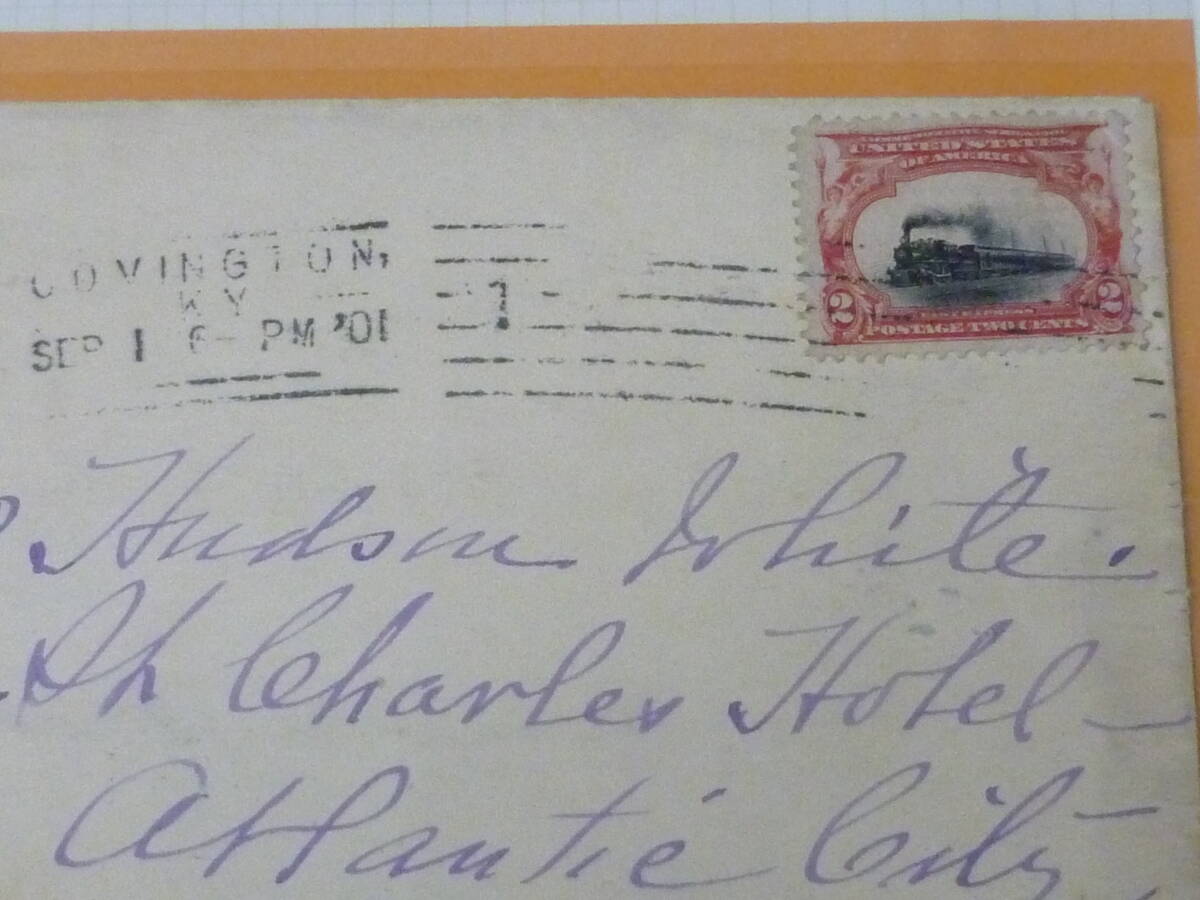 COVINGTON,
KY
SEP 1 6- PM '01
1
UNITED STATES
OF AMERICA
2 2
POSTAGE TWO CENTS
Hudson White.
St Charles Hotel -
Atlantic City